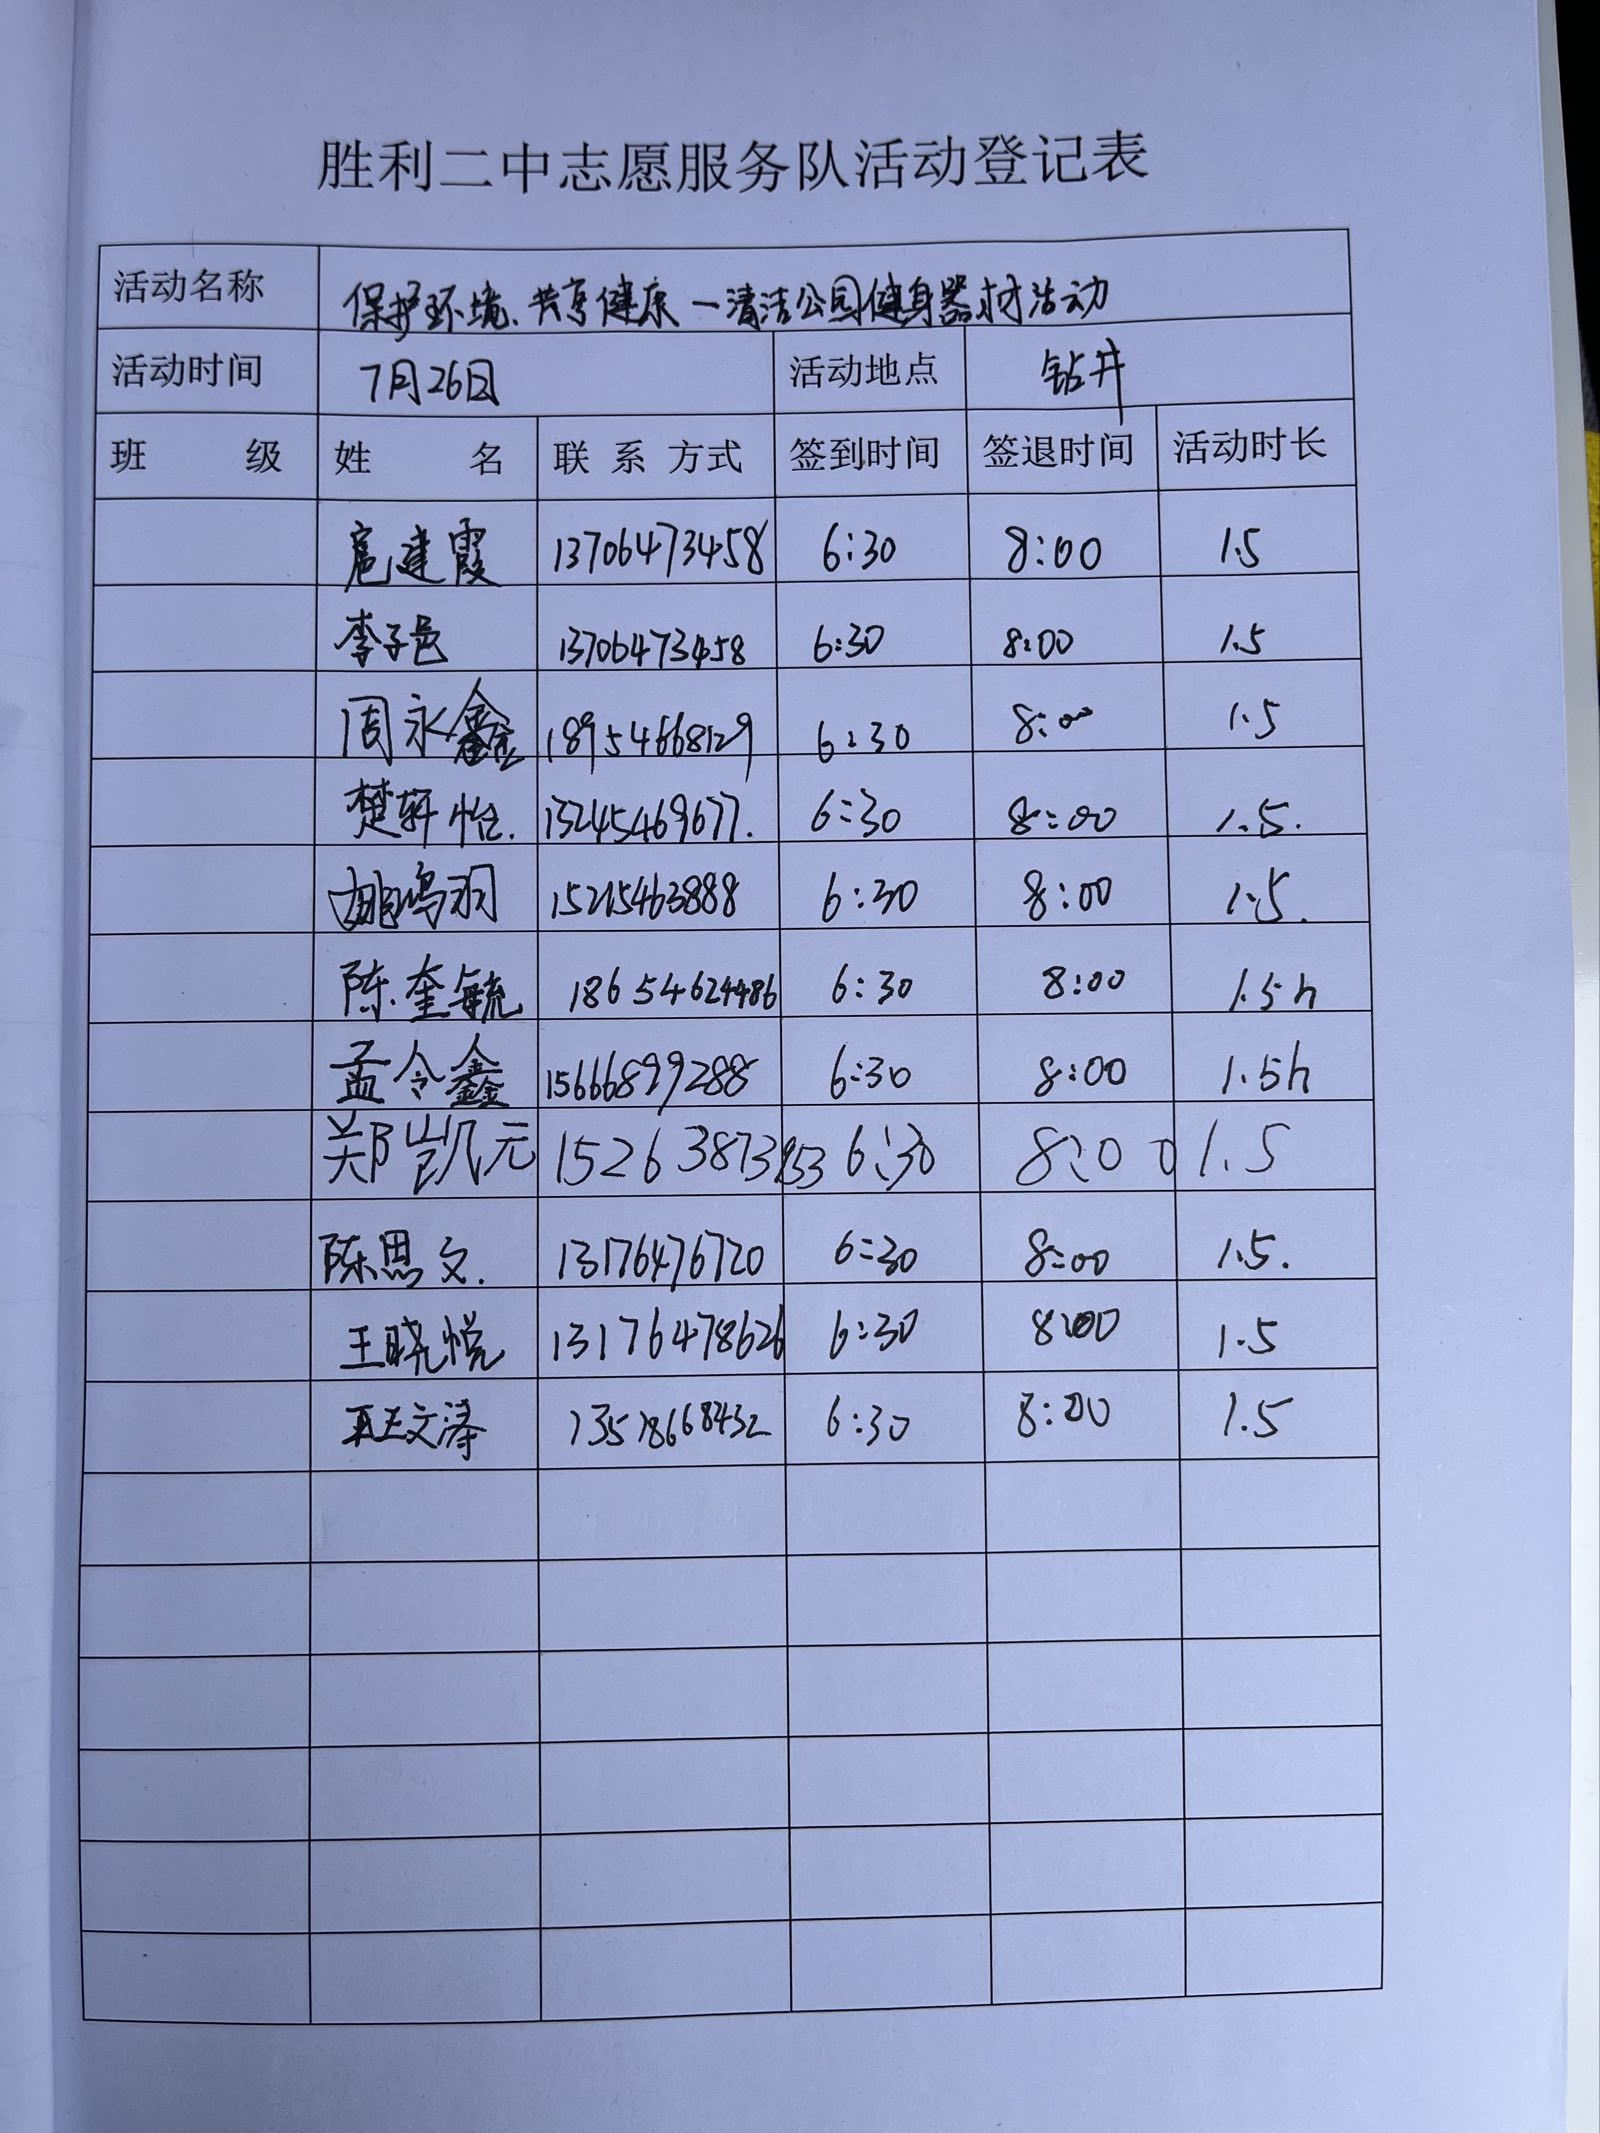 胜利二中志愿服务队活动登记表
活动名称 保护环境、共享健康—清洁公园健身器材活动
活动时间 7月26日 活动地点 钻井
班 级 姓 名 联 系 方式 签到时间 签退时间 活动时长
扈建霞 13706473458 6:30 8:00 1.5
李子邑 13706473458 6:30 8:00 1.5
周永鑫 18954668129 6:30 8:00 1.5
楚轩怡. 13245469677. 6:30 8:00 1.5.
胡鸣羽 15215463888 6:30 8:00 1.5.
陈奎毓 18654624486 6:30 8:00 1.5h
孟令鑫 15666899288 6:30 8:00 1.5h
郑凯元 15263873953 6:30 8:00 1.5
陈思文. 13176476720 6:30 8:00 1.5.
王晓悦 13176478626 6:30 8:00 1.5
文涛 13518668432 6:30 8:00 1.5